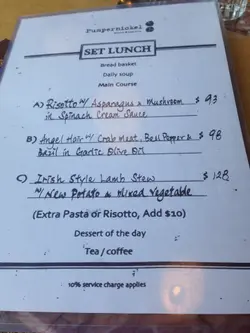 Pumpernickel
SET LUNCH
Bread basket
Daily soup
Main Course
A) Risotto w/ Asparagus & Mushroom $ 93
in Spinach Cream Sauce
B) Angel Hair w/ Crab Meat, Bell Pepper & $ 98
Basil in Garlic Olive Oil
C) Irish Style Lamb Stew $ 128
w/ New Potato & Mixed Vegetable
(Extra Pasta or Risotto, Add $10)
Dessert of the day
Tea / coffee
10% service charge applies